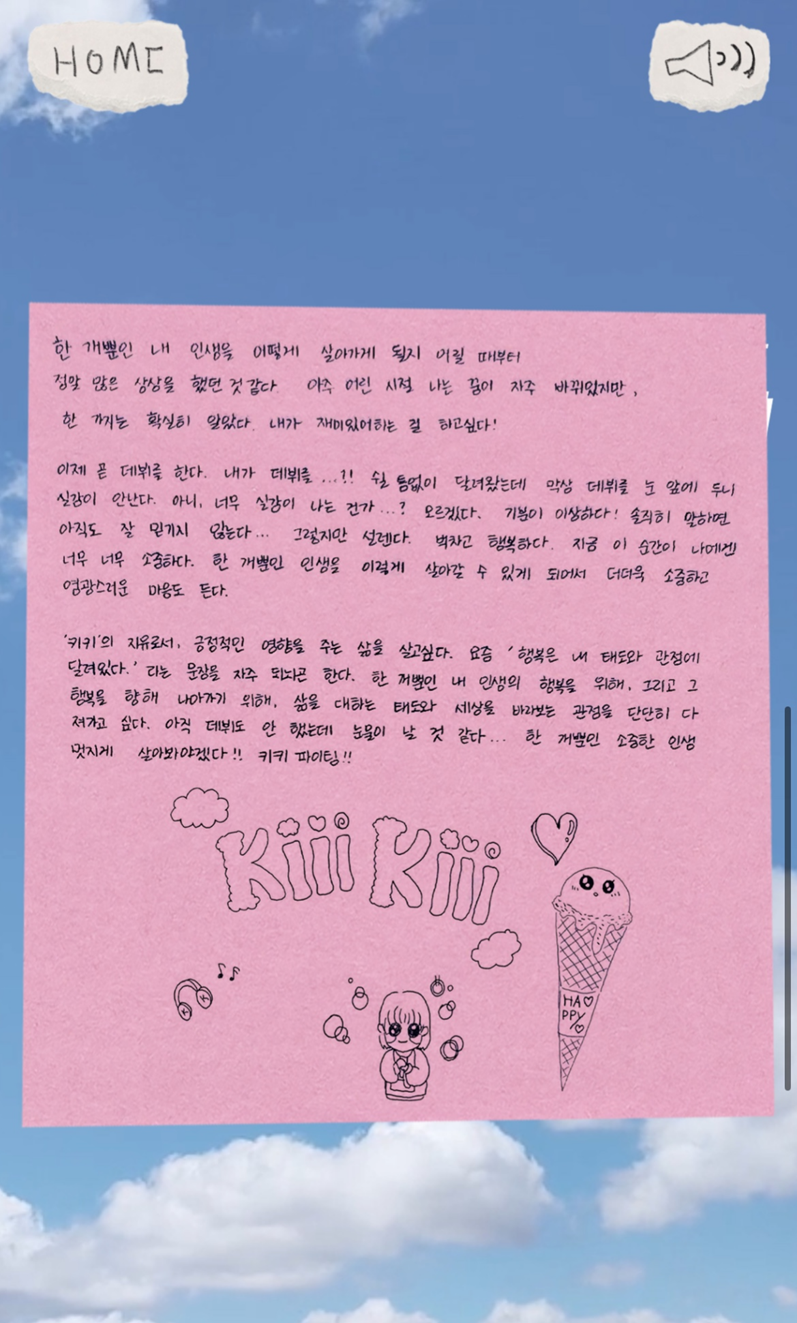 HOME
한 개뿐인 내 인생을 어떻게 살아가게 될지 어릴 때부터
정말 많은 상상을 했던 것 같다 아주 어린 시절 나는 꿈이 자주 바뀌었지만,
한 가지는 확실히 알았다. 내가 재미있어하는 걸 하고싶다!
이제 곧 데뷔를 한다. 내가 데뷔를...?! 쉴 틈없이 달려왔는데 막상 데뷔를 눈 앞에 두니
실감이 안난다. 아니, 너무 실감이 나는 건가...? 모르겠다. 기분이 이상하다! 솔직히 말하면
아직도 잘 믿기지 않는다... 그렇지만 설렌다. 벅차고 행복하다. 지금 이 순간이 나에겐
너무 너무 소중하다. 한 개뿐인 인생을 이렇게 살아갈 수 있게 되어서 더더욱 소중하고
영광스러운 마음도 든다.
'키키'의 지유로서, 긍정적인 영향을 주는 삶을 살고싶다. 요즘 '행복은 내 태도와 관점에
달려있다.' 라는 문장을 자주 되뇌곤 한다. 한 개뿐인 내 인생의 행복을 위해, 그리고 그
행복을 향해 나아가기 위해, 삶을 대하는 태도와 세상을 바라보는 관점을 단단히 다
져가고 싶다. 아직 데뷔도 안 했는데 눈물이 날 것 같다... 한 개뿐인 소중한 인생
멋지게 살아봐야겠다!! 키키 파이팅!!
Kiii Kiii
HA♡
PPY